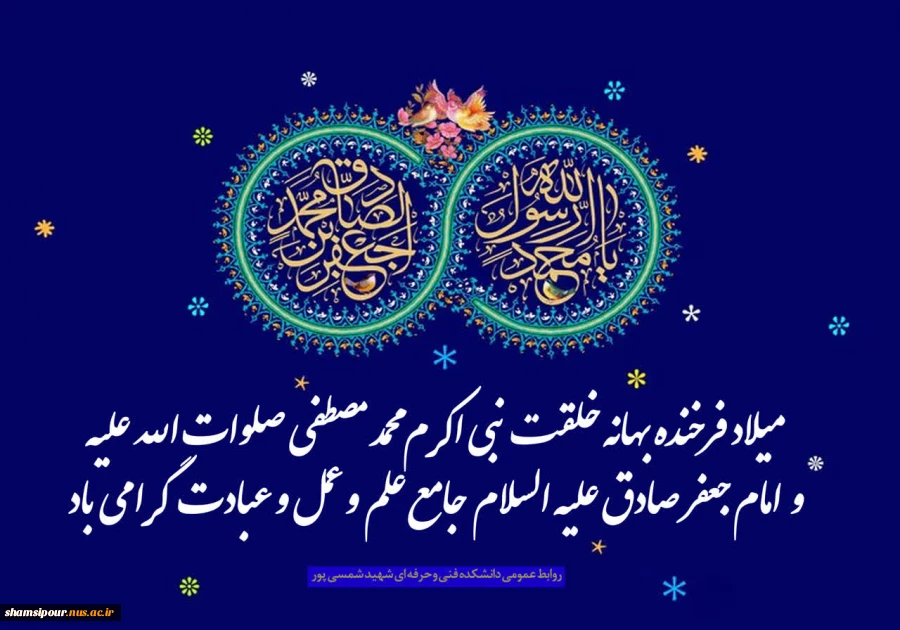 یا محمد رسول الله
جعفر بن محمد الصادق
میلاد فرخنده بهانه خلقت نبی اکرم محمد مصطفی صلوات الله علیه
و امام جعفر صادق علیه السلام جامع علم و عمل و عبادت گرامی باد
روابط عمومی دانشکده فنی وحرفه ای شهید شمسی پور
shamsipour.nus.ac.ir